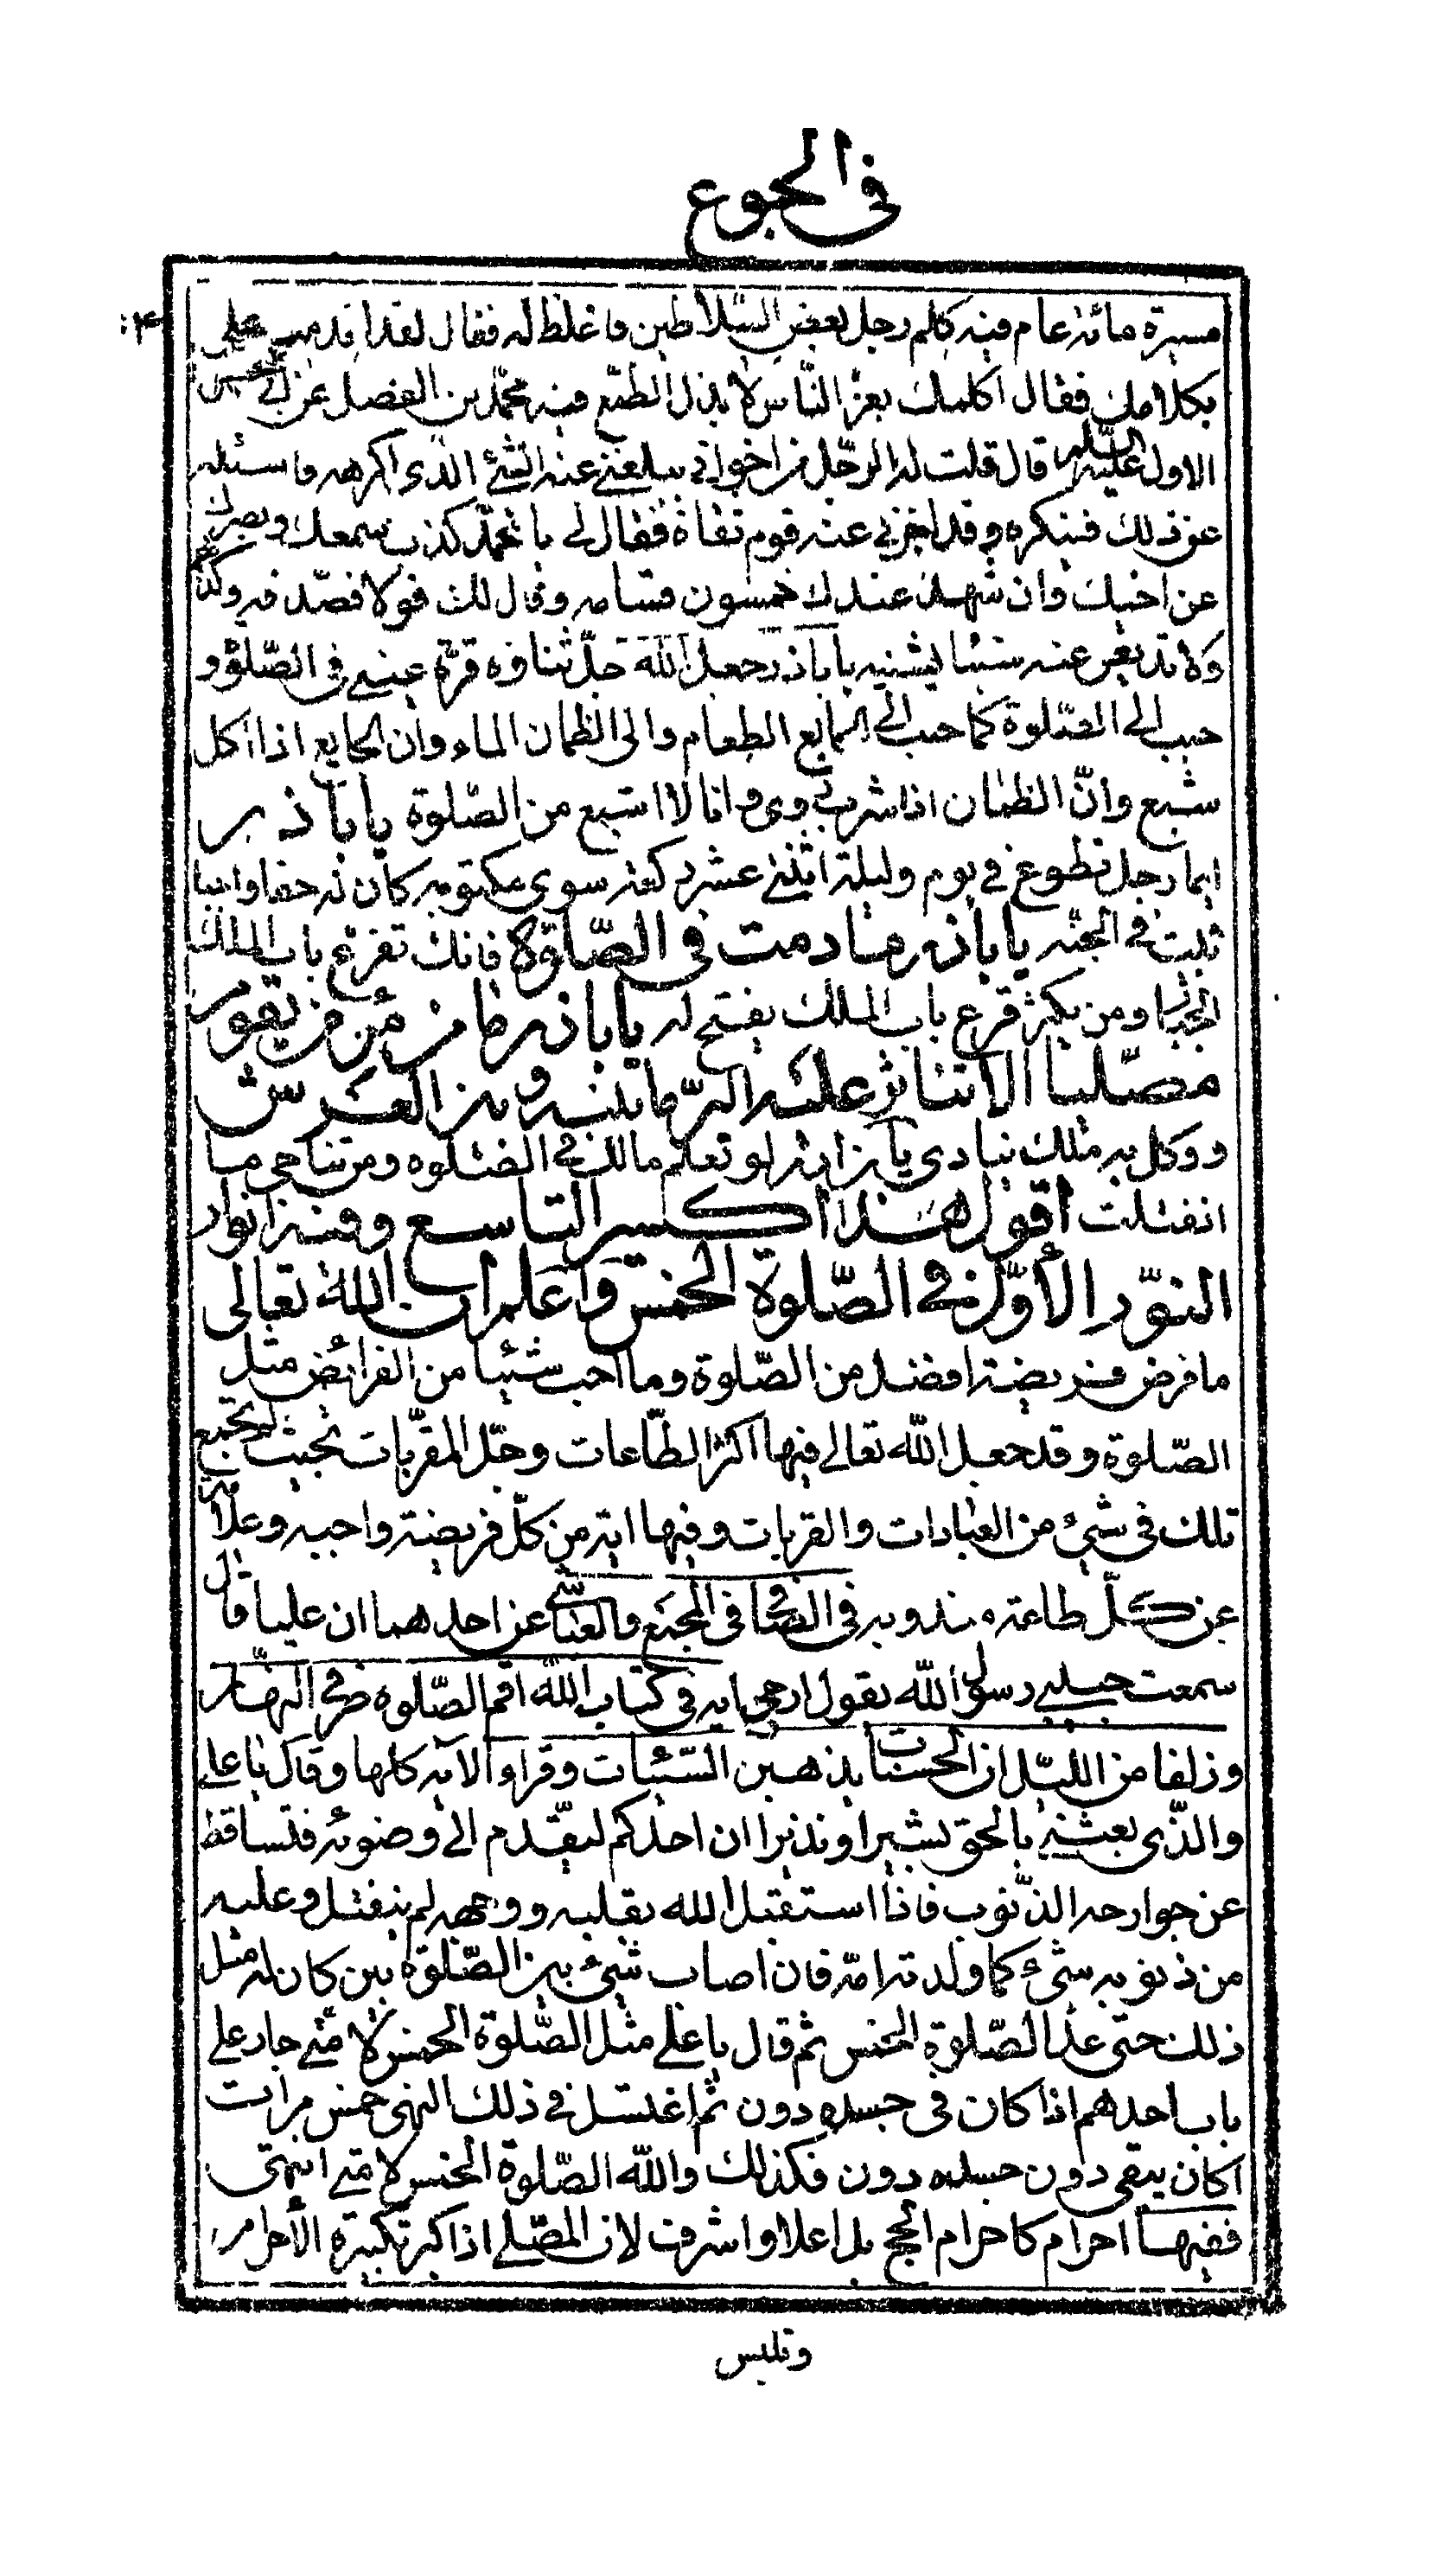 فى الجوع
مسيرة مائة عام فيه كلم رجل بعض السلاطين فاغلظ له فقال لقد اقدمت على
بكلامك فقال اكلمك بعز الناس لا بذل الطمع فيه محمد بن الفضل عن ابى الحسن
الاول عليه السلام قال قلت له الرجل من اخوانى يبلغنى عنه الشئ الذى اكرهه فاسئله
عن ذلك فينكره وقد اخبرنى عنه قوم ثقاة فقال لى يا محمد كذب سمعك وبصرك
عن اخيك وان شهد عندك خمسون قسامه وقال لك قولا فصدقه وكذبهم
ولا تذيعن عنه شيئا يشنيه يا باذر جعل الله جل ثناؤه قرة عينى فى الصلوة و
حبب الى الصلوة كما حبب الى الجايع الطعام والى الظمان الماء وان الجايع اذا اكل
شبع وانّ الظمان اذا شرب روى وانا لا اشبع من الصلوة يا باذر
ايما رجل تطوع فى يوم وليلة اثنتى عشر ركعة سوى مكتوبه كان له حقا واجبا
بيت فى الجنه يا باذر ما دمت فى الصلوة فانك تقرع باب الملك
الجبار ومن يكثر قرع باب الملك يفتح له يا باذر ما من مؤمن يقوم
مصليا الا تناثر عليه البرّ ما بينه وبين العرش
ووكل به ملك ينادى يا بن ادم لو تعلم مالك فى الصلوه ومن تناجى ما
انفتلت اقول هذا اكسير التاسع وفيه انوار
النور الأوّل فى الصلوة الخمس واعلم ان الله تعالى
ما فرض فريضة افضل من الصلوة وما احب شيئا من الفرائض مثل
الصلوة وقد جعل الله تعالى فيها اكثر الطاعات وجل المقربات بحيث لم يجتمع
تلك فى شئ من العبادات والقربات وفيها اية من كل فريضة واجبه وعلامة
عن كل طاعة مندوبه فى الصافى المجمع والعياشى عن احدهما ان عليا قال
سمعت حبيبى رسول الله يقول ارجى ايه فى كتاب الله اقم الصلوة طرفى النهار
وزلفا من الليل ان الحسنات يذهبن السيئات وقراء الآيه كلها وقال يا على
والذى بعثنى بالحق بشيرا ونذيرا ان احدكم ليقدم الى وضوئه فتساقط
عن جوارحه الذنوب فاذا استقبل الله بقلبه ووجهه لم ينفتل وعليه
من ذنوبه شئ كما ولدته امه فان اصاب شئ بين الصلوة بين كان له مثل
ذلك حتى عدّ الصلوة الخمس ثم قال يا على مثل الصلوة الخمس لامتى جار على
باب احدهم اذا كان فى جسده دون ثم اغتسل فى ذلك النهر خمس مرات
اكان يبقى دون جسده دون فكذلك والله الصلوة الخمس لامتى انتهى
ففيها احرام كاحرام الحج بل اعلا واشرف لان المصلى اذا كبر تكبيرة الأحرام
وتلبس